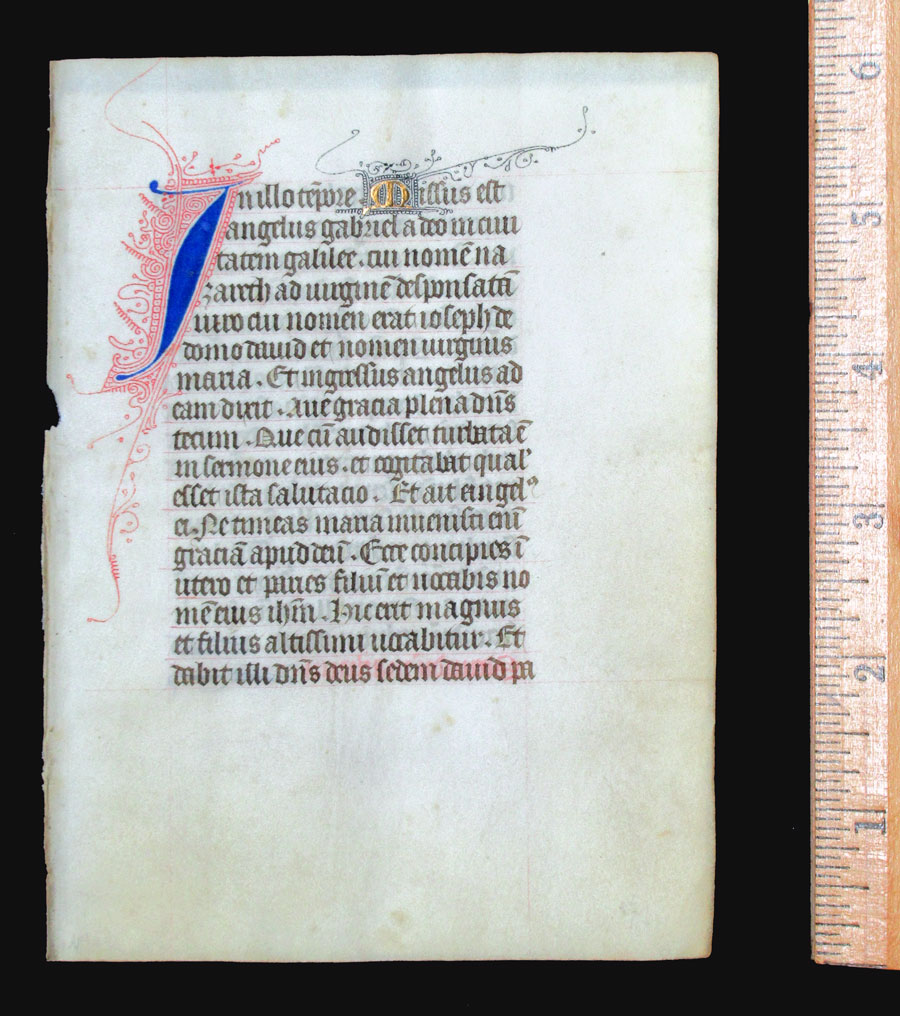 In illo tēpore Missus est
angelus gabriel a deo in ciui
tatem galilee . cui nomē na
zareth ad uirginē desponsatā
uiro cui nomen erat ioseph de
domo dauid et nomen uirginis
maria . Et ingressus angelus ad
eam dixit . Aue gracia plena dn̄s
tecum . Que cū audisset turbata ē
in sermone eius . et cogitabat qual'
esset ista salutacio . Et ait angelꝰ
ei . Ne timeas maria inuenisti eni͞
graciā apud deū . Ecce concipies ī
utero et paries filiū et uocabis no
mē eius ihm̄ . Hic erit magnus
et filius altissimi uocabitur . Et
dabit illi dn̄s deus sedem dauid pa
6
5
4
3
2
1